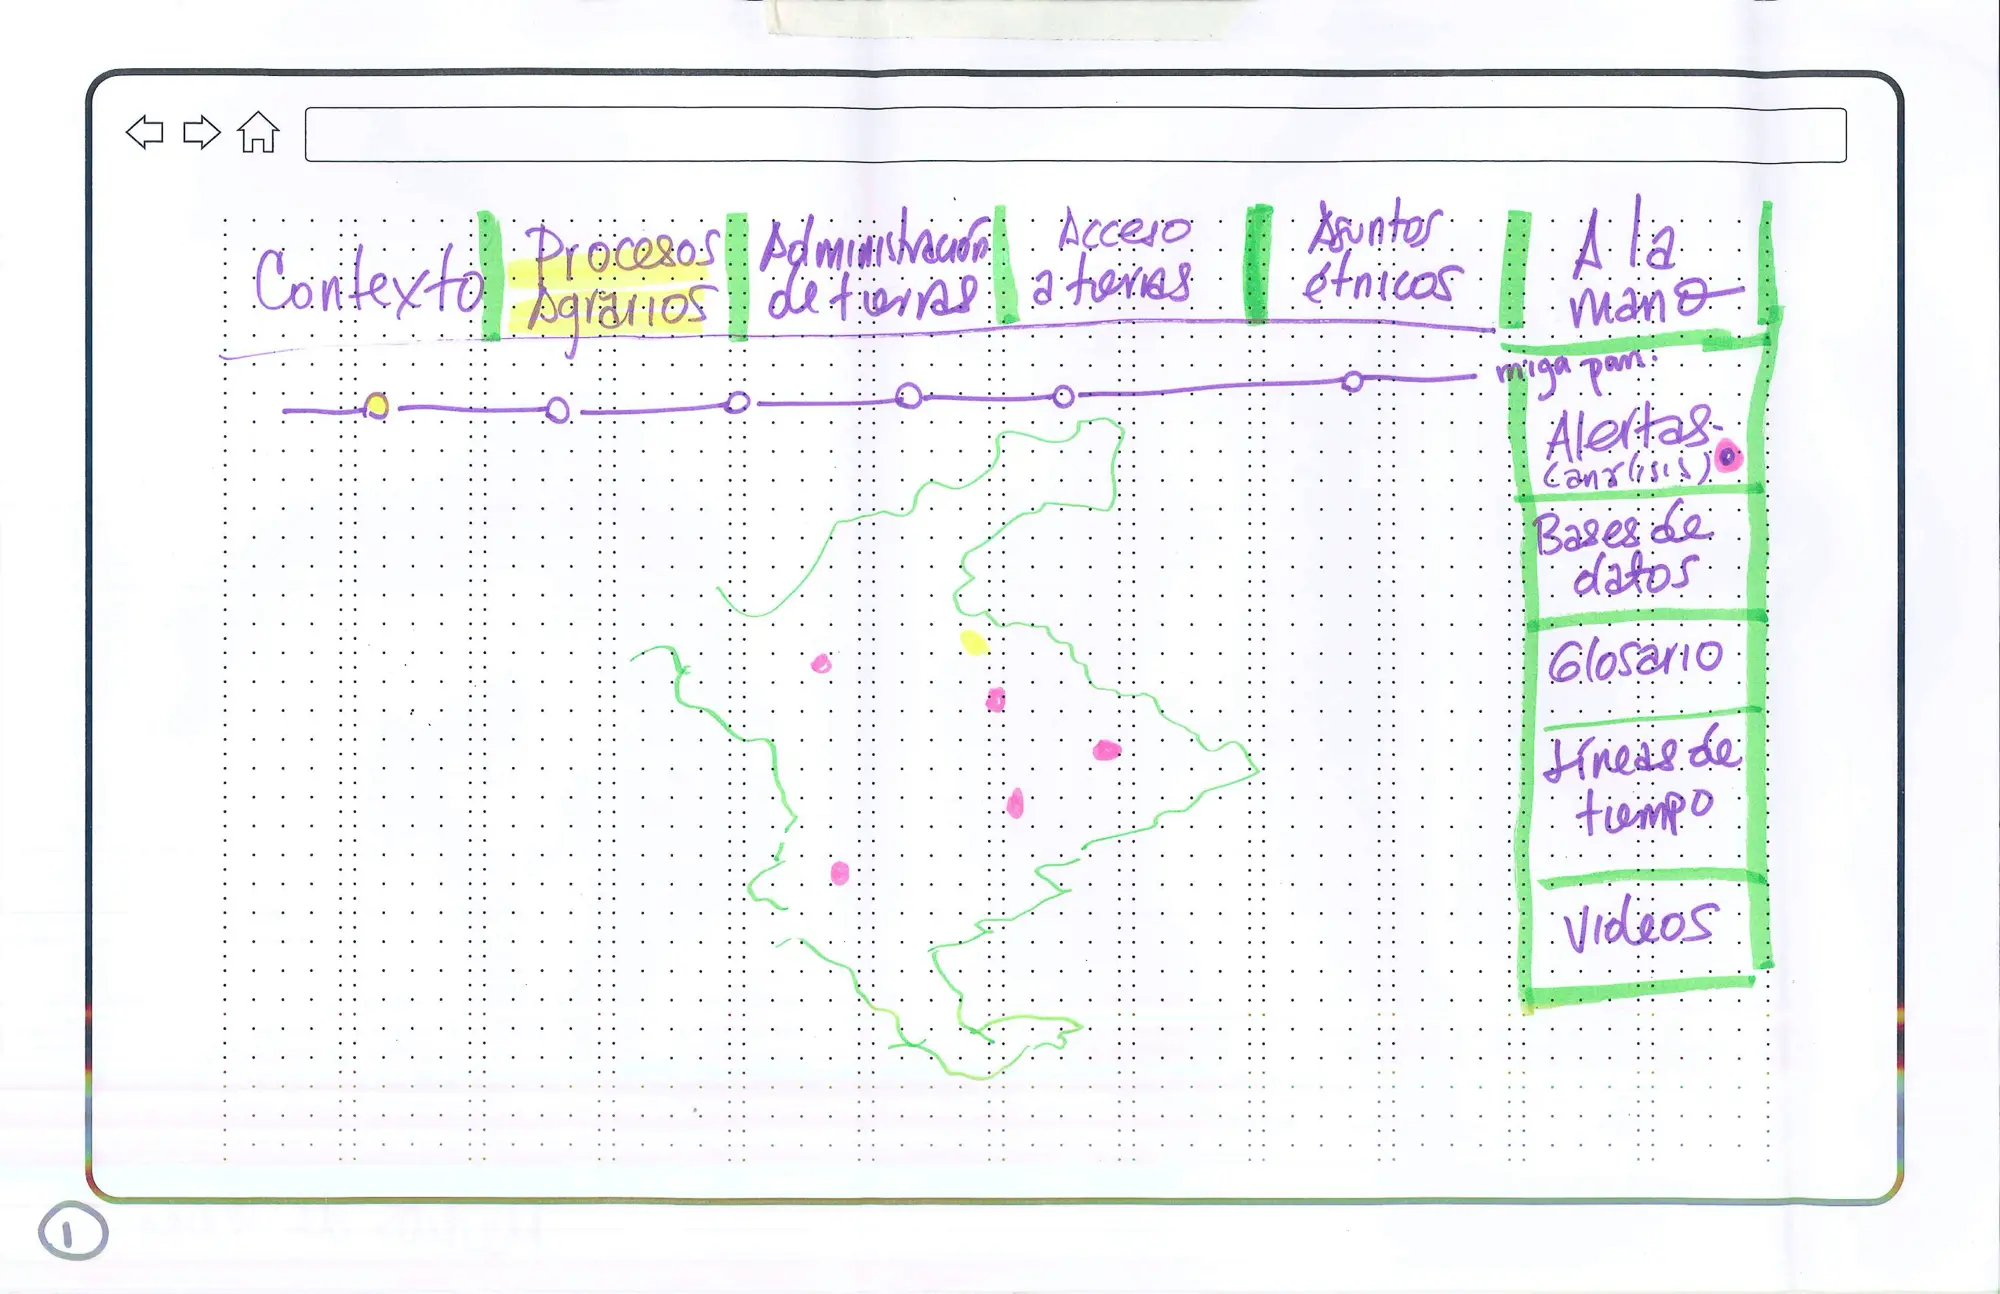 Contexto
Procesos
Agrarios
Administración
de tierras
Acceso
a tierras
Asuntos
étnicos
A la
mano
miga pan.
Alertas-
(análisis)
Bases de
datos
Glosario
Líneas de
tiempo
Videos
1